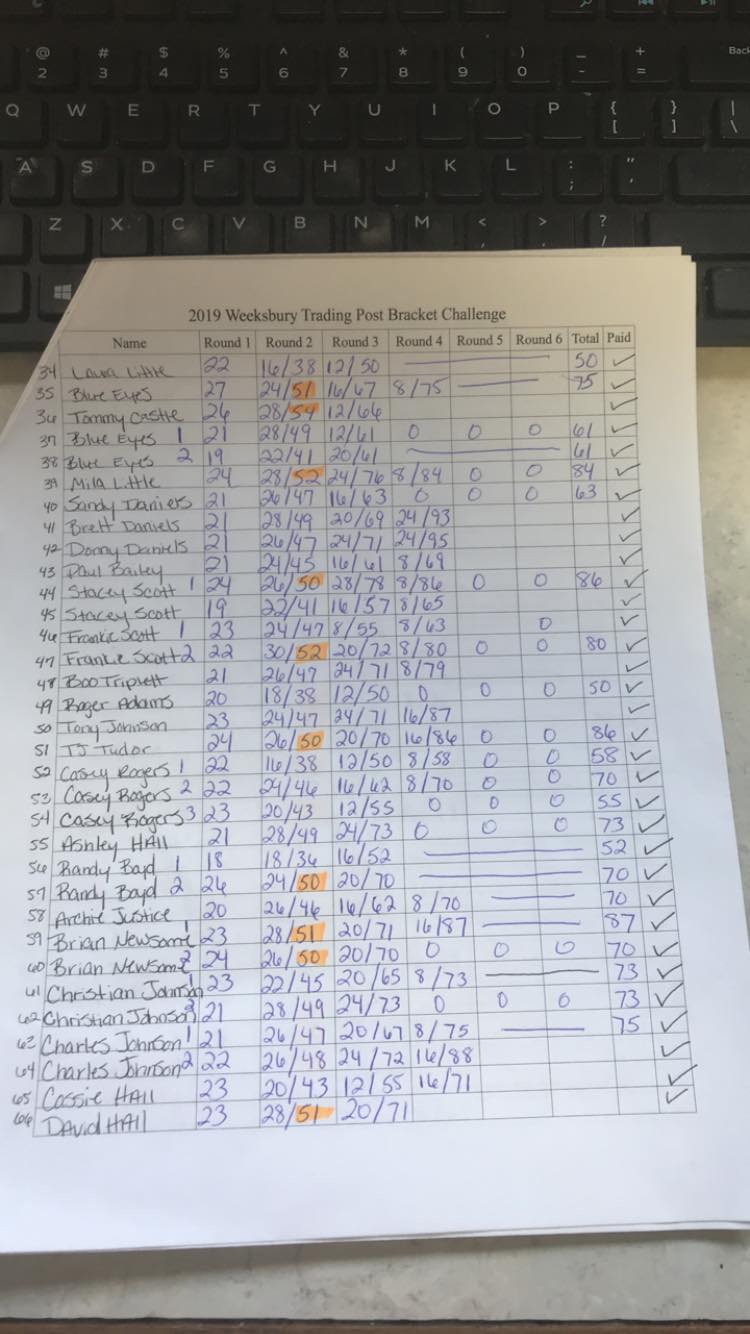 @ # $ % ^ & * ( ) _ + Back
2 3 4 5 6 7 8 9 0 - =
Q W E R T Y U I O P { } |
[ ] \
A S D F G H J K L : "
; '
Z X C V B N M < > ?
, . /
2019 Weeksbury Trading Post Bracket Challenge
Name Round 1 Round 2 Round 3 Round 4 Round 5 Round 6 Total Paid
34 Laura Little 22 16/38 12/50 50 ✓
35 Blue Eyes 27 24/51 16/67 8/75 75 ✓
36 Tommy Castle 26 28/54 12/66 ✓
37 Blue Eyes 1 21 28/49 12/61 0 0 0 61 ✓
38 Blue Eyes 2 19 22/41 20/61 61 ✓
39 Mila Little 24 28/52 24/76 8/84 0 0 84 ✓
40 Sandy Daniels 21 26/47 16/63 0 0 0 63 ✓
41 Brett Daniels 21 28/49 20/69 24/93 ✓
42 Donny Daniels 21 26/47 24/71 24/95 ✓
43 Paul Bailey 21 24/45 16/61 8/69 ✓
44 Stacey Scott 1 24 26/50 28/78 8/86 0 0 86 ✓
45 Stacey Scott 19 22/41 16/57 8/65 ✓
46 Frankie Scott 1 23 24/47 8/55 8/63 0 ✓
47 Frankie Scott 2 22 30/52 20/72 8/80 0 0 80 ✓
48 Boo Triplett 21 26/47 24/71 8/79 ✓
49 Roger Adams 20 18/38 12/50 0 0 0 50 ✓
50 Tony Johnson 23 24/47 24/71 16/87 ✓
51 TJ Tudor 24 26/50 20/70 16/86 0 0 86 ✓
52 Casey Rogers 1 22 16/38 12/50 8/58 0 0 58 ✓
53 Casey Rogers 2 22 24/46 16/62 8/70 0 0 70 ✓
54 Casey Rogers 3 23 20/43 12/55 0 0 0 55 ✓
55 Ashley Hall 21 28/49 24/73 0 0 0 73 ✓
56 Randy Boyd 1 18 18/36 16/52 52 ✓
57 Randy Boyd 2 26 24/50 20/70 70 ✓
58 Archie Justice 20 26/46 16/62 8/70 70 ✓
59 Brian Newsome 1 23 28/51 20/71 16/87 87 ✓
60 Brian Newsome 2 24 26/50 20/70 0 0 0 70 ✓
61 Christian Johnson 1 23 22/45 20/65 8/73 73 ✓
62 Christian Johnson 2 21 28/49 24/73 0 0 0 73 ✓
63 Charles Johnson 1 21 26/47 20/67 8/75 75 ✓
64 Charles Johnson 2 22 26/48 24/72 16/88 ✓
65 Cassie Hall 23 20/43 12/55 16/71 ✓
66 David Hall 23 28/51 20/71 ✓